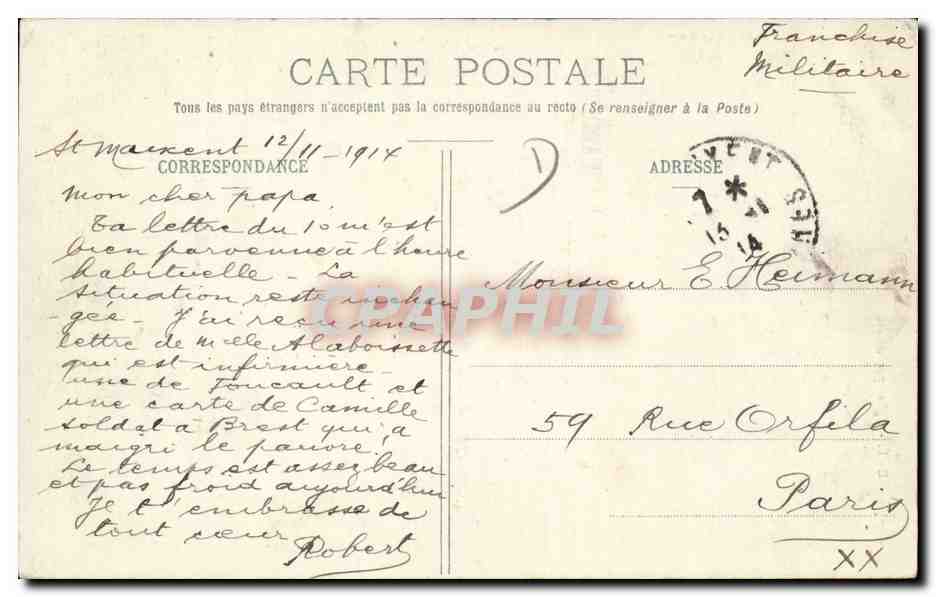 Franchise
Militaire
CARTE POSTALE
Tous les pays étrangers n'acceptent pas la correspondance au recto (Se renseigner à la Poste)
St Maixent 12/11-1914
CORRESPONDANCE
Mon cher papa
Ta lettre du 10 m'est
bien parvenue à l'heure
habituelle - La
situation reste inchan
-gée - J'ai reçu une
lettre de Melle Alaboissette
qui est infirmière -
une de Foucault et
une carte de Camille
soldat à Brest qui a
maigri le pauvre!
Le temps est assez beau
et pas froid aujourd'hui
Je t'embrasse de
tout cœur
Robert
D
ADRESSE
IXENT
SEVRES
7 *
13 - 11
14
Monsieur E. Heimann
59 Rue Orfila
Paris
XX
CPAPHIL